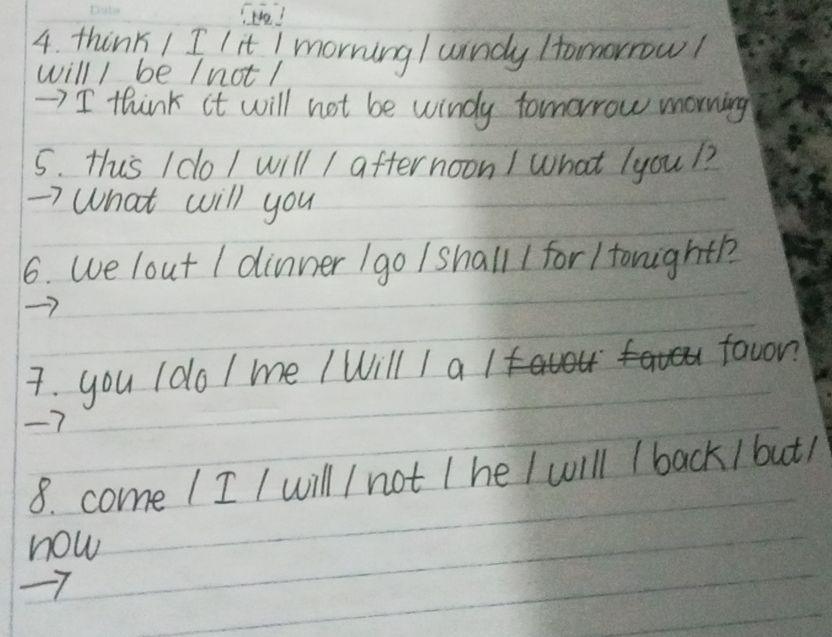 Date
No!
4. think / I / it / morning / windy / tomorrow /
will / be / not /
→ I think it will not be windy tomorrow morning
5. this / do / will / afternoon / what / you / ?
→ What will you
6. we / out / dinner / go / shall / for / tonight / ?
→
7. you / do / me / Will / a / favou favou favor?
→
8. come / I / will / not / he / will / back / but /
now
→